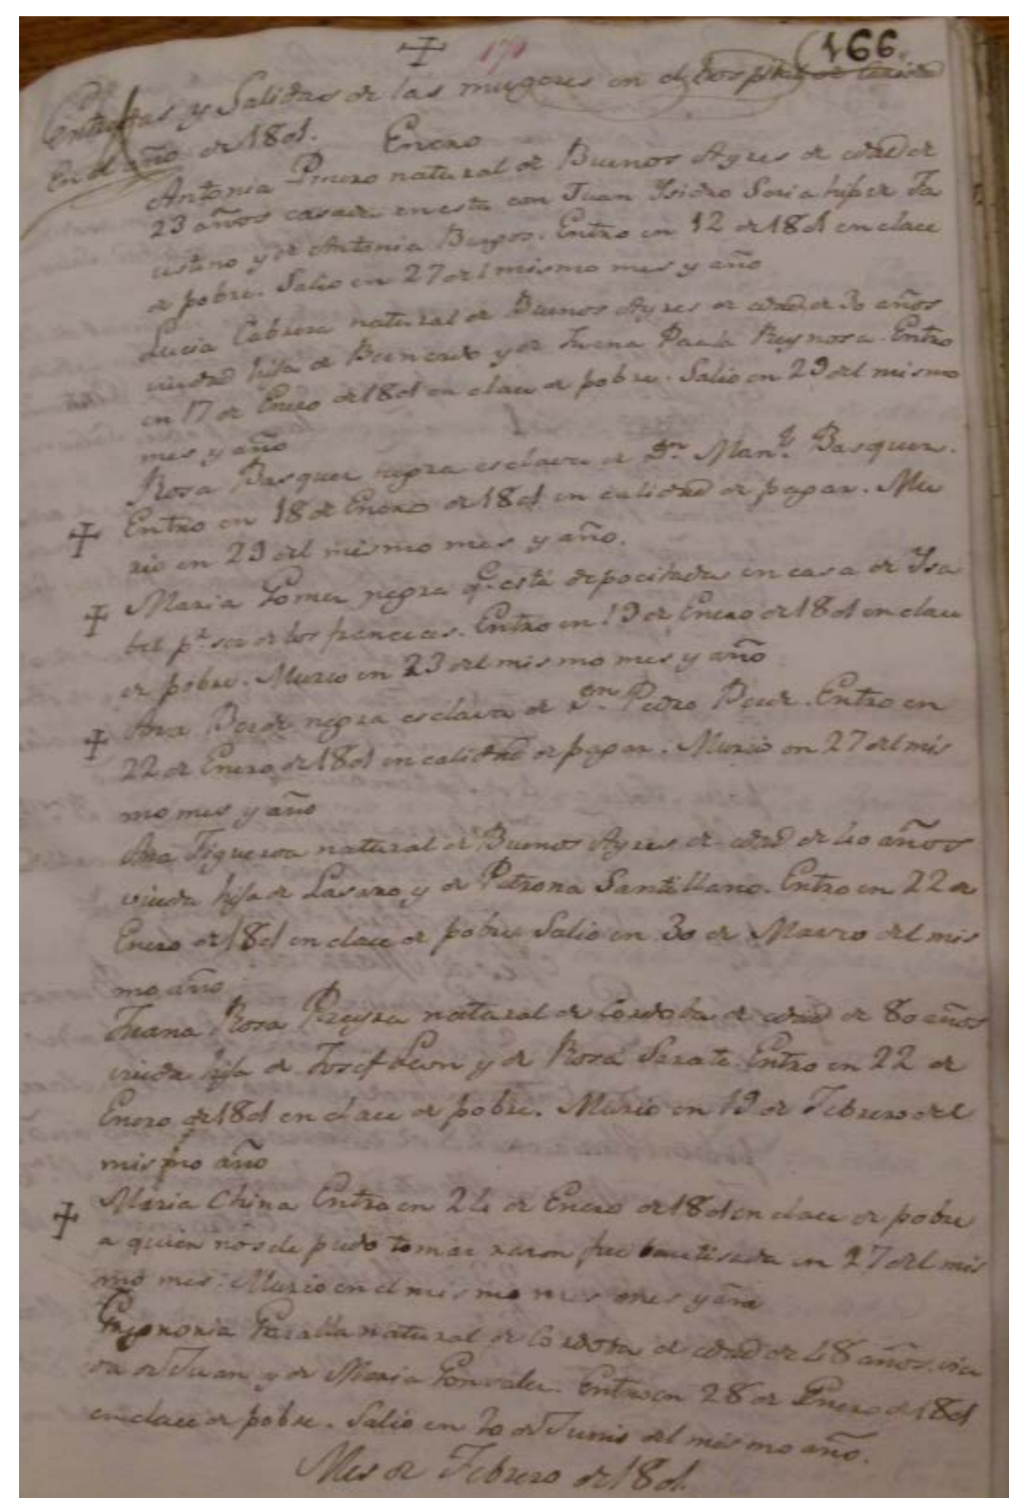 170 166
Entradas y Salidas de las mugeres en el
en el año de 1801. Enero
Antonia natural de Buenos Ayres de edad de
23 años casada en esta con Juan Ysidro Soria hija de Fa
ustino y de Antonia Burgos. Entro en 12 de 1801 en clace
de pobre. Salio en 27 del mismo mes y año
Lucia Cabrera natural de Buenos Ayres de edad de 30 años
viuda hija de y de Juana Paula Reynosa. Entro
en 17 de Enero de 1801 en clace de pobre. Salio en 29 del mismo
mes y año
Rosa Basquez negra esclava de Dn. Manl. Basquez.
Entro en 18 de Enero de 1801 en calidad de pagar. Mu
rio en 23 del mismo mes y año.
Maria Gomez negra q. está depocitada en casa de Ysa
bel pr. ser de los franceces. Entro en 19 de Enero de 1801 en clace
de pobre. Murio en 23 del mismo mes y año
Ana negra esclava de Dn. Pedro. Entro en
22 de Enero de 1801 en calidad de pagar. Murio en 27 del mis
mo mes y año
Ana Figueroa natural de Buenos Ayres de edad de 40 años
viuda hija de Lasaro y de Petrona Santillano. Entro en 22 de
Enero de 1801 en clace de pobre Salio en 30 de Marzo del mis
mo año
Juana Rosa Pereyra natural de Cordoba de edad de 80 años
viuda hija de Josef Leon y de Rosa Sarate. Entro en 22 de
Enero de 1801 en clace de pobre. Murio en 19 de Febrero del
mismo año
Maria China Entro en 24 de Enero de 1801 en clace de pobre
a quien no se le pudo tomar razon fue bautisada en 27 del mis
mo mes. Murio en el mismo mes y año
natural de Cordoba de edad de 48 años. viu
da de Juan y de Maria Gonzales. Entro en 28 de Enero de 1801
en clace de pobre. Salio en 20 de Junio del mismo año.
Mes de Febrero de 1801.